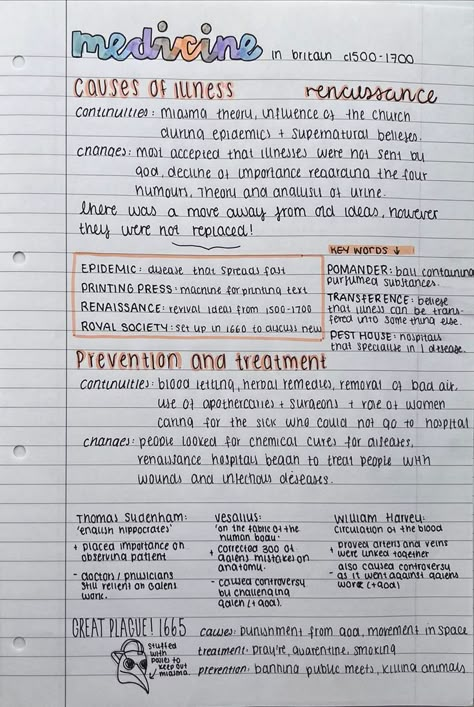 medicine in britain c1500-1700
causes of illness renaissance
continuities: miasma theory, influence of the church
during epidemics + supernatural beliefs.
changes: most accepted that illnesses were not sent by
god, decline of importance regarding the four
humours, theory and analysis of urine.
there was a move away from old ideas, however
they were not replaced!
EPIDEMIC: disease that spreads fast
PRINTING PRESS: machine for printing text
RENAISSANCE: revival ideas from 1500-1700
ROYAL SOCIETY: set up in 1660 to discuss new
KEY WORDS ↓
POMANDER: ball containing
purfumed substances.
TRANSFERENCE: believe
that illness can be trans-
fered into something else.
PEST HOUSE: hospitals
that specialise in 1 disease.
Prevention and treatment
continuities: blood letting, herbal remedies, removal of bad air,
use of apothecaries + surgeons + role of women
caring for the sick who could not go to hospital
changes: people looked for chemical cures for diseases,
renaissance hospitals began to treat people with
wounds and infectious diseases.
Thomas Sydenham:
'english hippocrates'
+ placed importance on
observing patient
- doctors/physicians
still relient on Galens
work.
Vesalius:
'on the fabric of the
human body'
+ corrected 300 of
galens mistakes on
anatomy.
- caused controversy
by challenging
galen (+god).
William Harvey:
circulation of the blood
+ proved arteris and veins
were linked together
- also caused controversy
as it went against galens
work (+god)
GREAT PLAGUE! 1665
stuffed
with
to
keep out
miasma
causes: punishment from god, movement in space
treatment: prayre, quarentine, smoking
prevention: banning public meets, killing animals